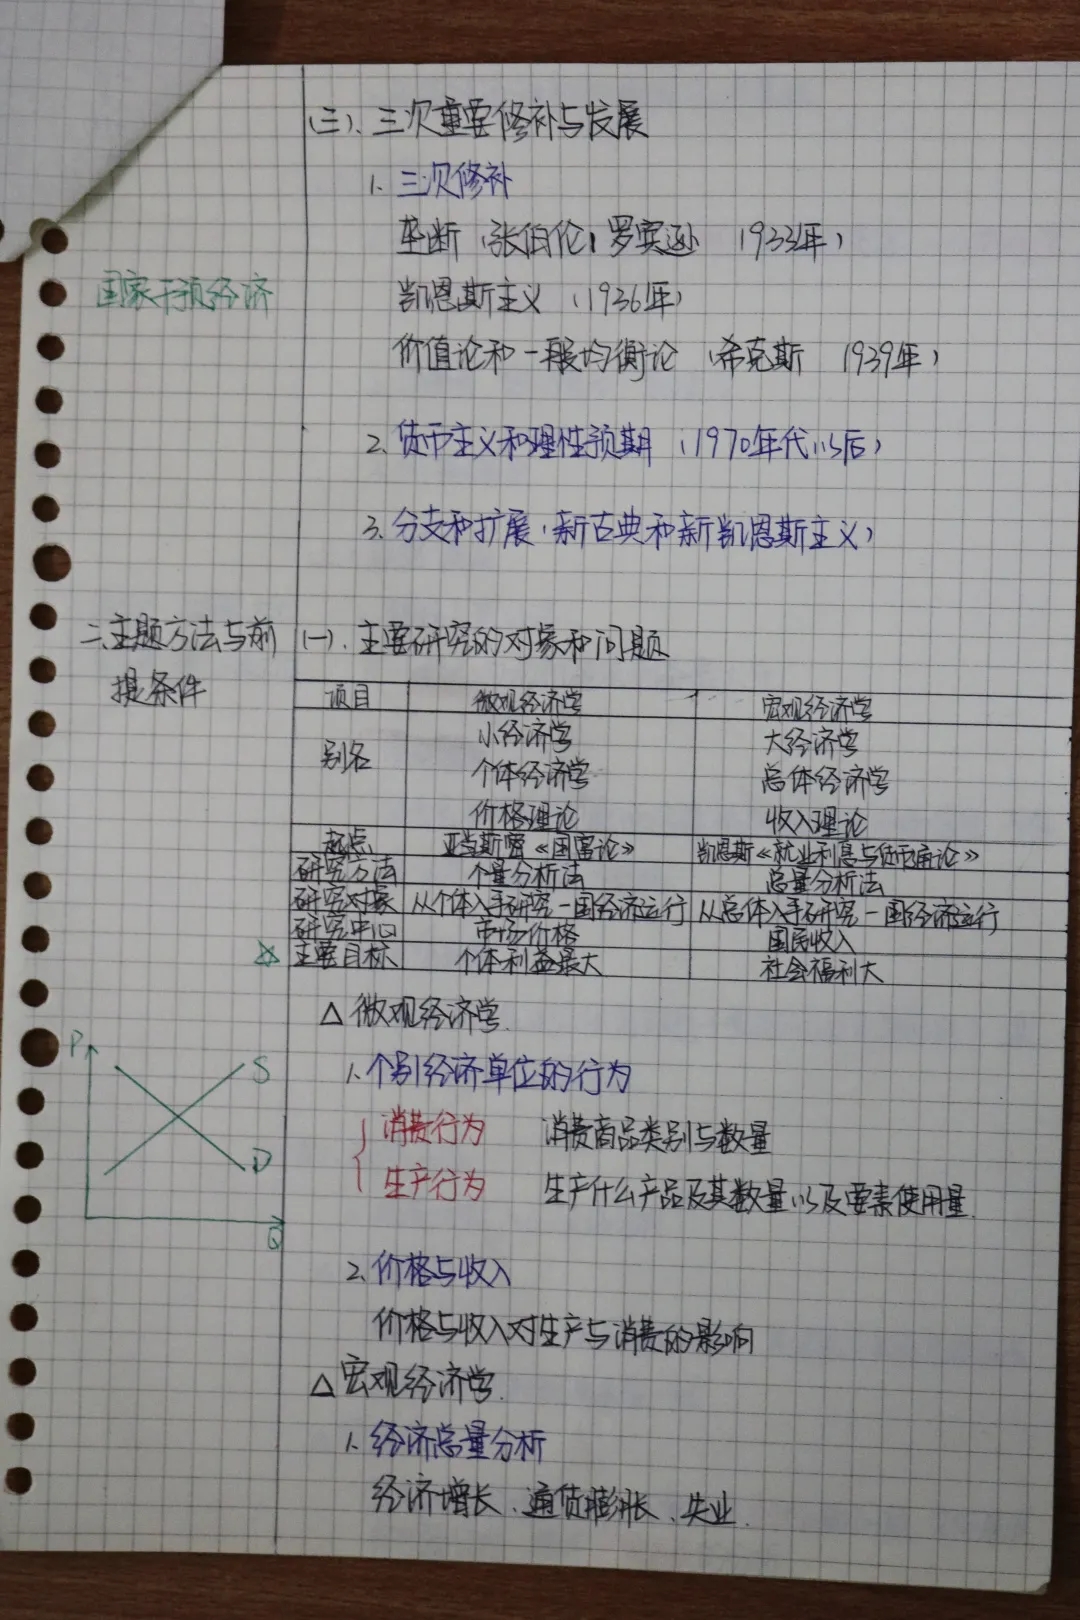 (三)、三次重要修补与发展
1、三次修补
垄断(张伯伦,罗宾逊 1933年)
国家干预经济
凯恩斯主义(1936年)
价值论和一般均衡论(希克斯 1939年)
2、货币主义和理性预期(1970年代以后)
3、分支和扩展(新古典和新凯恩斯主义)
二、主题方法与前提条件
(一)、主要研究的对象和问题
项目 微观经济学 宏观经济学
别名 小经济学 大经济学
个体经济学 总体经济学
价格理论 收入理论
起点 亚当斯密《国富论》 凯恩斯《就业利息与货币通论》
研究方法 个量分析法 总量分析法
研究对象 从个体入手研究一国经济运行 从总体入手研究一国经济运行
研究中心 市场价格 国民收入
☆ 主要目标 个体利益最大 社会福利大
△ 微观经济学.
P
S
D
Q
1、个别经济单位的行为
消费行为 消费商品类别与数量
生产行为 生产什么产品及其数量以及要素使用量.
2、价格与收入
价格与收入对生产与消费的影响
△ 宏观经济学.
1、经济总量分析
经济增长、通货膨胀、失业.